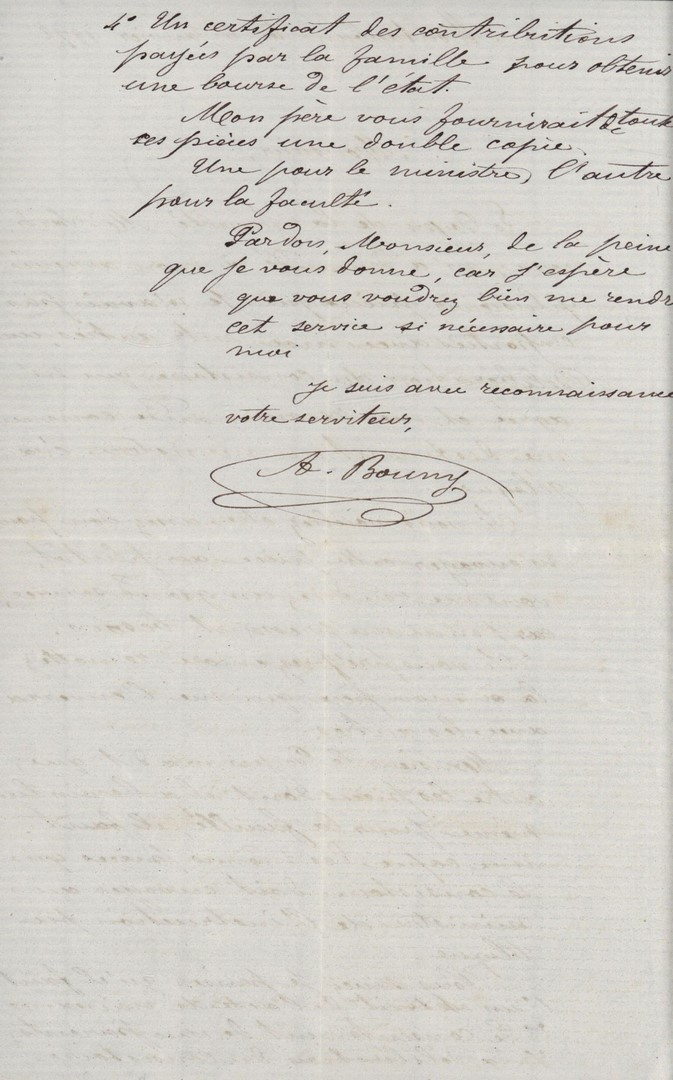 4° Un certificat des contributions
payées par la famille pour obtenir
une bourse de l'état.
Mon père vous fournirait de toutes
ces pièces une double copie.
Une pour le ministre, l'autre
pour la faculté.
Pardon, Monsieur, de la peine
que je vous donne, car j'espère
que vous voudrez bien me rendre
cet service si nécessaire pour
moi
je suis avec reconnaissance
votre serviteur,
A. Bouny